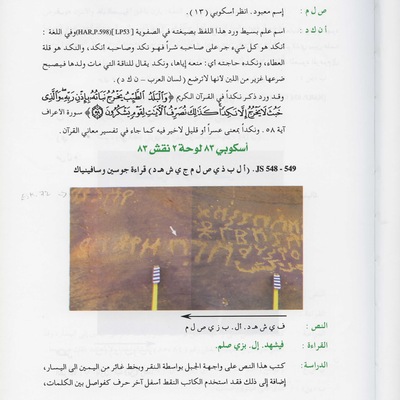 ص ل م : إسم معبود. انظر أسكوبي (١٣).
أ ن ك د : اسم علم بسيط ورد هذا اللفظ بصيغته في الصفوية [LP53](HAR.P.598) وفي اللغة :
أنكد هو كل شيء جر على صاحبه شراً فهو نكد وصاحبه أنكد، والنكد هو قلة
العطاء، ونكده حاجته أي: منعه إياها، ونكد يقال للناقة التي مات ولدها فيصبح
ضرعها غزير من اللبن لأنها لاترضع (لسان العرب - ن ك د).
وقد ورد ذكر نكداً في القرآن الكريم ﴿وَالْبَلَدُ الطَّيِّبُ يَخْرُجُ نَبَاتُهُ بِإِذْنِ رَبِّهِ وَالَّذِي
خَبُثَ لَا يَخْرُجُ إِلَّا نَكِدًا كَذَلِكَ نُصَرِّفُ الْآيَاتِ لِقَوْمٍ يَشْكُرُونَ ﴾ سورة الاعراف
آية ٥٨. ونكداً بمعنى عسراً أو قليل لاخير فيه كما جاء في تفسير معاني القرآن.
أسكوبي ٨٢ لوحة ٢ نقش ٨٢
JS 548 - 549. (أ ل ب ذ ي ص ل م ج ي ش هـ د) قراءة جوسين وسافينياك
النص : ف ي ش هـ د. ا ل. ب ز ي ص ل م
القراءة : فيشهد. إل. بزي صلم.
الدراسة : كتب هذا النص على واجهة الجبل بواسطة النقر وبخط غائر من اليمين الى اليسار،
إضافة إلى ذلك فقد استخدم الكاتب النقط أسفل آخر حرف كفواصل بين الكلمات،